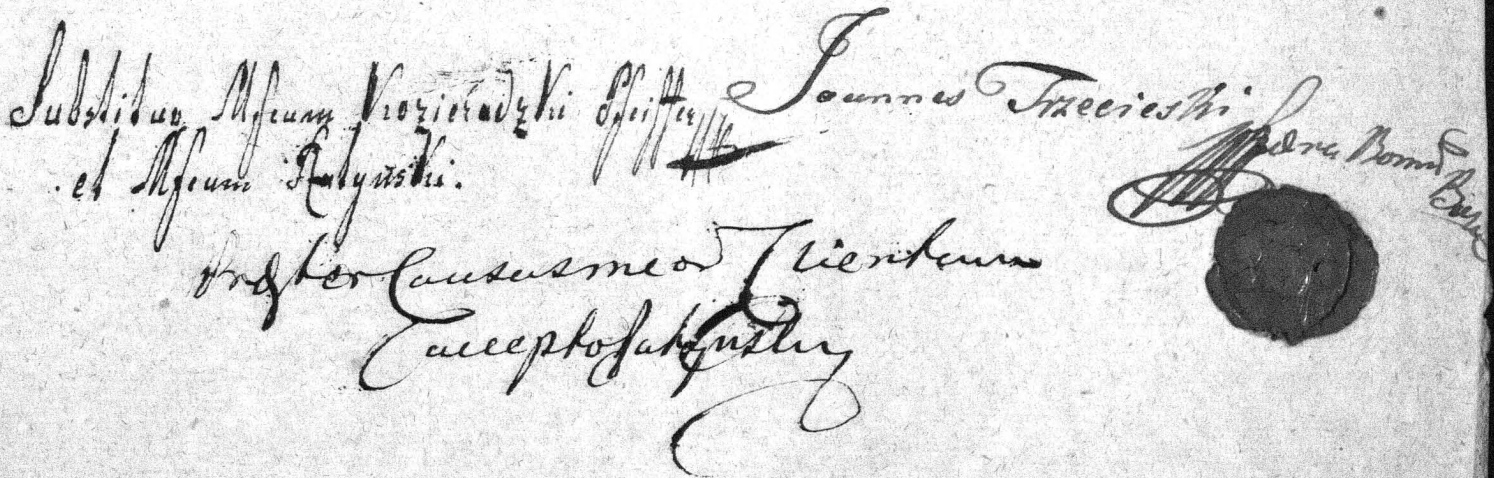 Substituo Mfcum Kozieradzki Pfeiffer
et Mfcum Ratynski.
Joannes Trzecieski
Præter Causas meor Clientium
accepto Ratynski